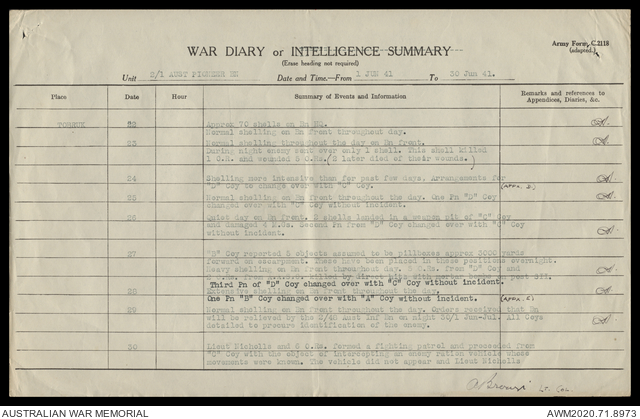 Army Form C.2118
(adapted.)
WAR DIARY or INTELLIGENCE SUMMARY
(Erase heading not required)
Unit 2/1 AUST PIONEER BN Date and Time.—From 1 JUN 41 To 30 Jun 41.
Place Date Hour Summary of Events and Information Remarks and references to Appendices, Diaries, &c.
TOBRUK 22 Approx 70 shells on Bn HQ.
Normal shelling on Bn front throughout day.
23 Normal shelling throughout the day on Bn front.
During night enemy sent over only 1 shell. This shell killed
1 O.R. and wounded 5 O.Rs. (2 later died of their wounds.)
24 Shelling more intensive than for past few days. Arrangements for
"D" Coy to change over with "C" Coy. (APPX. D.)
25 Normal shelling on Bn front throughout the day. One Pn "D" Coy
changed over with "C" Coy without incident.
26 Quiet day on Bn front. 2 shells landed in a weapon pit of "C" Coy
and damaged 2 M.Gs. Second Pn from "D" Coy changed over with "C" Coy
without incident.
27 "B" Coy reported 5 objects assumed to be pillboxes approx 3000 yards
forward on escarpment. These have been placed in these positions overnight.
Heavy shelling on Bn front throughout day. 3 O.Rs. from "D" Coy and
Third Pn of "D" Coy changed over with "C" Coy without incident.
28 Extensive shelling on Bn front throughout the day.
One Pn "B" Coy changed over with "A" Coy without incident. (APPX. E.)
29 Normal shelling on Bn front throughout the day. Orders received that Bn
will be relieved by the 2/43 Aust Inf Bn on night 30/1 Jun-Jul. All Coys
detailed to procure identification of the enemy.
30 Lieut Nicholls and 8 O.Rs. formed a fighting patrol and proceeded from
"C" Coy with the object of intercepting an enemy ration vehicle whose
movements were known. The vehicle did not appear and Lieut Nicholls
Lt. Col.
AUSTRALIAN WAR MEMORIAL AWM2020.71.8973